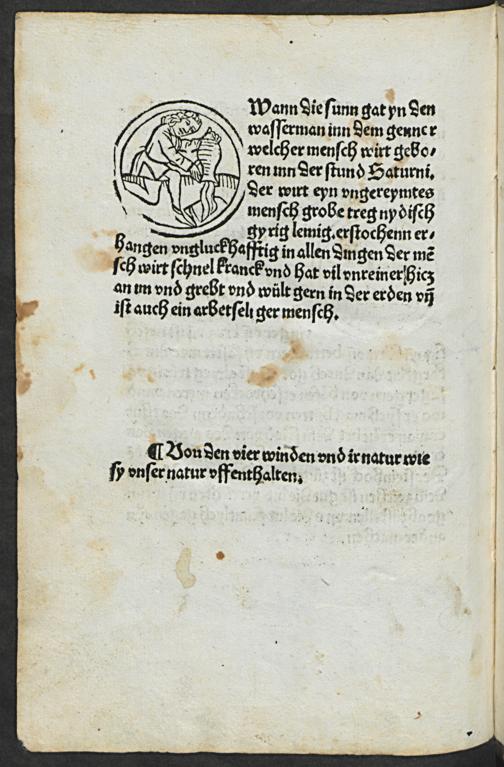 Wann die sunn gat yn den
wasserman inn dem genner
welcher mensch wirt gebo⸗
ren inn der stund Saturni.
der wirt eyn vngereymtes
mensch grobe treg nydisch
gyrig lemig. erstochenn er⸗
hangen vngluckhafftig in allen dingen der mē
sch wirt schnel kranck vnd hat vil vnreiner hicz
an im vnd grebt vnd wült gern in der erden vn̄
ist auch ein arbetselig ger mensch.
¶ Von den vier winden vnd ir natur wie
sy vnser natur vffenthalten.